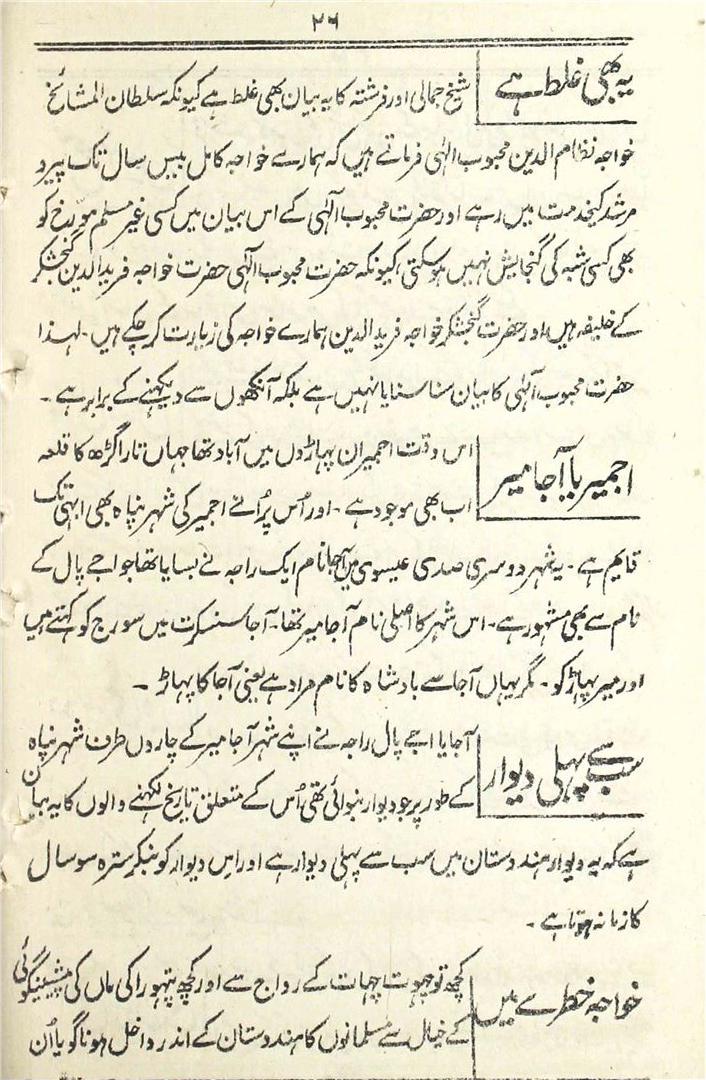 ۲۶
یہ بھی غلط ہے
شیخ جمالی اور فرشتہ کا یہ بیان بھی غلط ہے کیونکہ سلطان المشائخ
خواجہ نظام الدین محبوب الٰہی فرماتے ہیں کہ ہمارے خواجہ کامل بیس سال تک پیر و
مرشد کیخدمت میں رہے اور حضرت محبوب الٰہی کے اس بیان میں کسی غیر مسلم مورخ کو
بھی کسی شبہ کی گنجایش نہیں ہوسکتی کیونکہ حضرت محبوب الٰہی حضرت خواجہ فرید الدین گنجشکر
کے خلیفہ ہیں اور حضرت گنجشکر خواجہ فرید الدین ہمارے خواجہ کی زیارت کرچکے ہیں۔ لہذا
حضرت محبوب الٰہی کا بیان سنا سنایا نہیں ہے بلکہ آنکھوں سے دیکھنے کے برابر ہے۔
اجمیر یا آجا میر
اس وقت اجمیر ان پہاڑوں میں آباد تھا جہاں تارا گڑھ کا قلعہ
اب بھی موجود ہے۔ اور اُس پُرانے اجمیر کی شہر پناہ بھی ابھی تک
قایم ہے۔ یہ شہر دوسری صدی عیسوی میں آجا نام ایک راجہ نے بسایا تھا جو اجے پال کے
نام سے بھی مشہور ہے۔ اس شہر کا اصلی نام آجا میر تھا۔ آجا سنسکرت میں سورج کو کہتے ہیں
اور میر پہاڑ کو۔ مگر یہاں آجا سے بادشاہ کا نام مراد ہے یعنی آجا کا پہاڑ۔
سب سے پہلی دیوار
آجا یا اجے پال راجہ نے اپنے شہر آجا میر کے چاروں طرف شہر پناہ
کے طور پر جو دیوار بنوائی تھی اُس کے متعلق تاریخ لکھنے والوں کا یہ بیان
ہے کہ یہ دیوار ہندوستان میں سب سے پہلی دیوار ہے اور اس دیوار کو بنکر سترہ سو سال
کا زمانہ ہوتا ہے۔
خواجہ خطرے میں
کچھ تو چھوت چھات کے رواج سے اور کچھ پتہورا کی ماں کی پیشینگوئی
کے خیال سے مسلمانوں کا ہندوستان کے اندر داخل ہونا گویا اُن